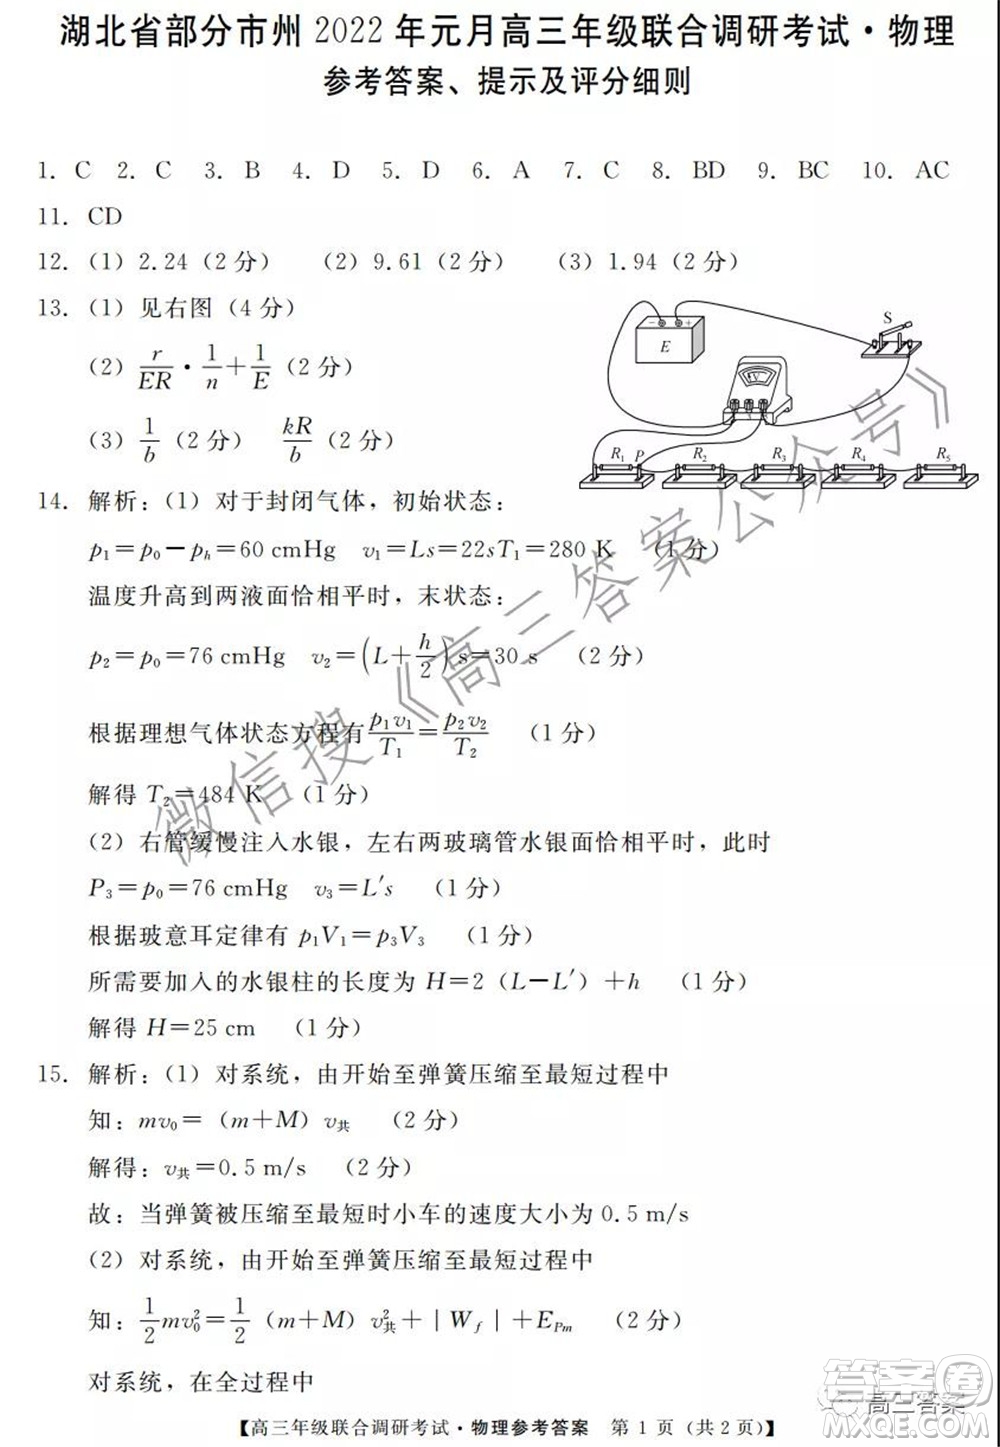 湖北省部分市州 2022 年元月高三年级联合调研考试·物理
参考答案、提示及评分细则
1. C 2. C 3. B 4. D 5. D 6. A 7. C 8. BD 9. BC 10. AC
11. CD
12.（1）2.24（2 分） （2）9.61（2 分） （3）1.94（2 分）
13.（1）见右图（4 分）
（2）r/ER · 1/n + 1/E（2 分）
（3）1/b（2 分） kR/b（2 分）
E
S
V
R₁ P R₂ R₃ R₄ R₅
14. 解析:（1）对于封闭气体，初始状态:
p₁=p₀－pₕ=60 cmHg v₁=Ls=22sT₁=280 K （1 分）
温度升高到两液面恰相平时，末状态:
p₂=p₀=76 cmHg v₂=(L+h/2)s=30 s （2 分）
根据理想气体状态方程有 p₁v₁/T₁=p₂v₂/T₂ （1 分）
解得 T₂=484 K （1 分）
（2）右管缓慢注入水银，左右两玻璃管水银面恰相平时，此时
P₃=p₀=76 cmHg v₃=L′s （1 分）
根据玻意耳定律有 p₁V₁=p₃V₃ （1 分）
所需要加入的水银柱的长度为 H=2（L－L′）+h （1 分）
解得 H=25 cm （1 分）
15. 解析:（1）对系统，由开始至弹簧压缩至最短过程中
知: mv₀=（m+M）v共 （2 分）
解得: v共=0.5 m/s （2 分）
故:当弹簧被压缩至最短时小车的速度大小为 0.5 m/s
（2）对系统，由开始至弹簧压缩至最短过程中
知: 1/2 mv₀²=1/2（m+M）v共²+|W_f|+E_Pm （2 分）
对系统，在全过程中
【高三年级联合调研考试·物理参考答案 第 1 页（共 2 页）】
微信搜《高三答案公众号》
高三答案
答案圈
MXQE.COM